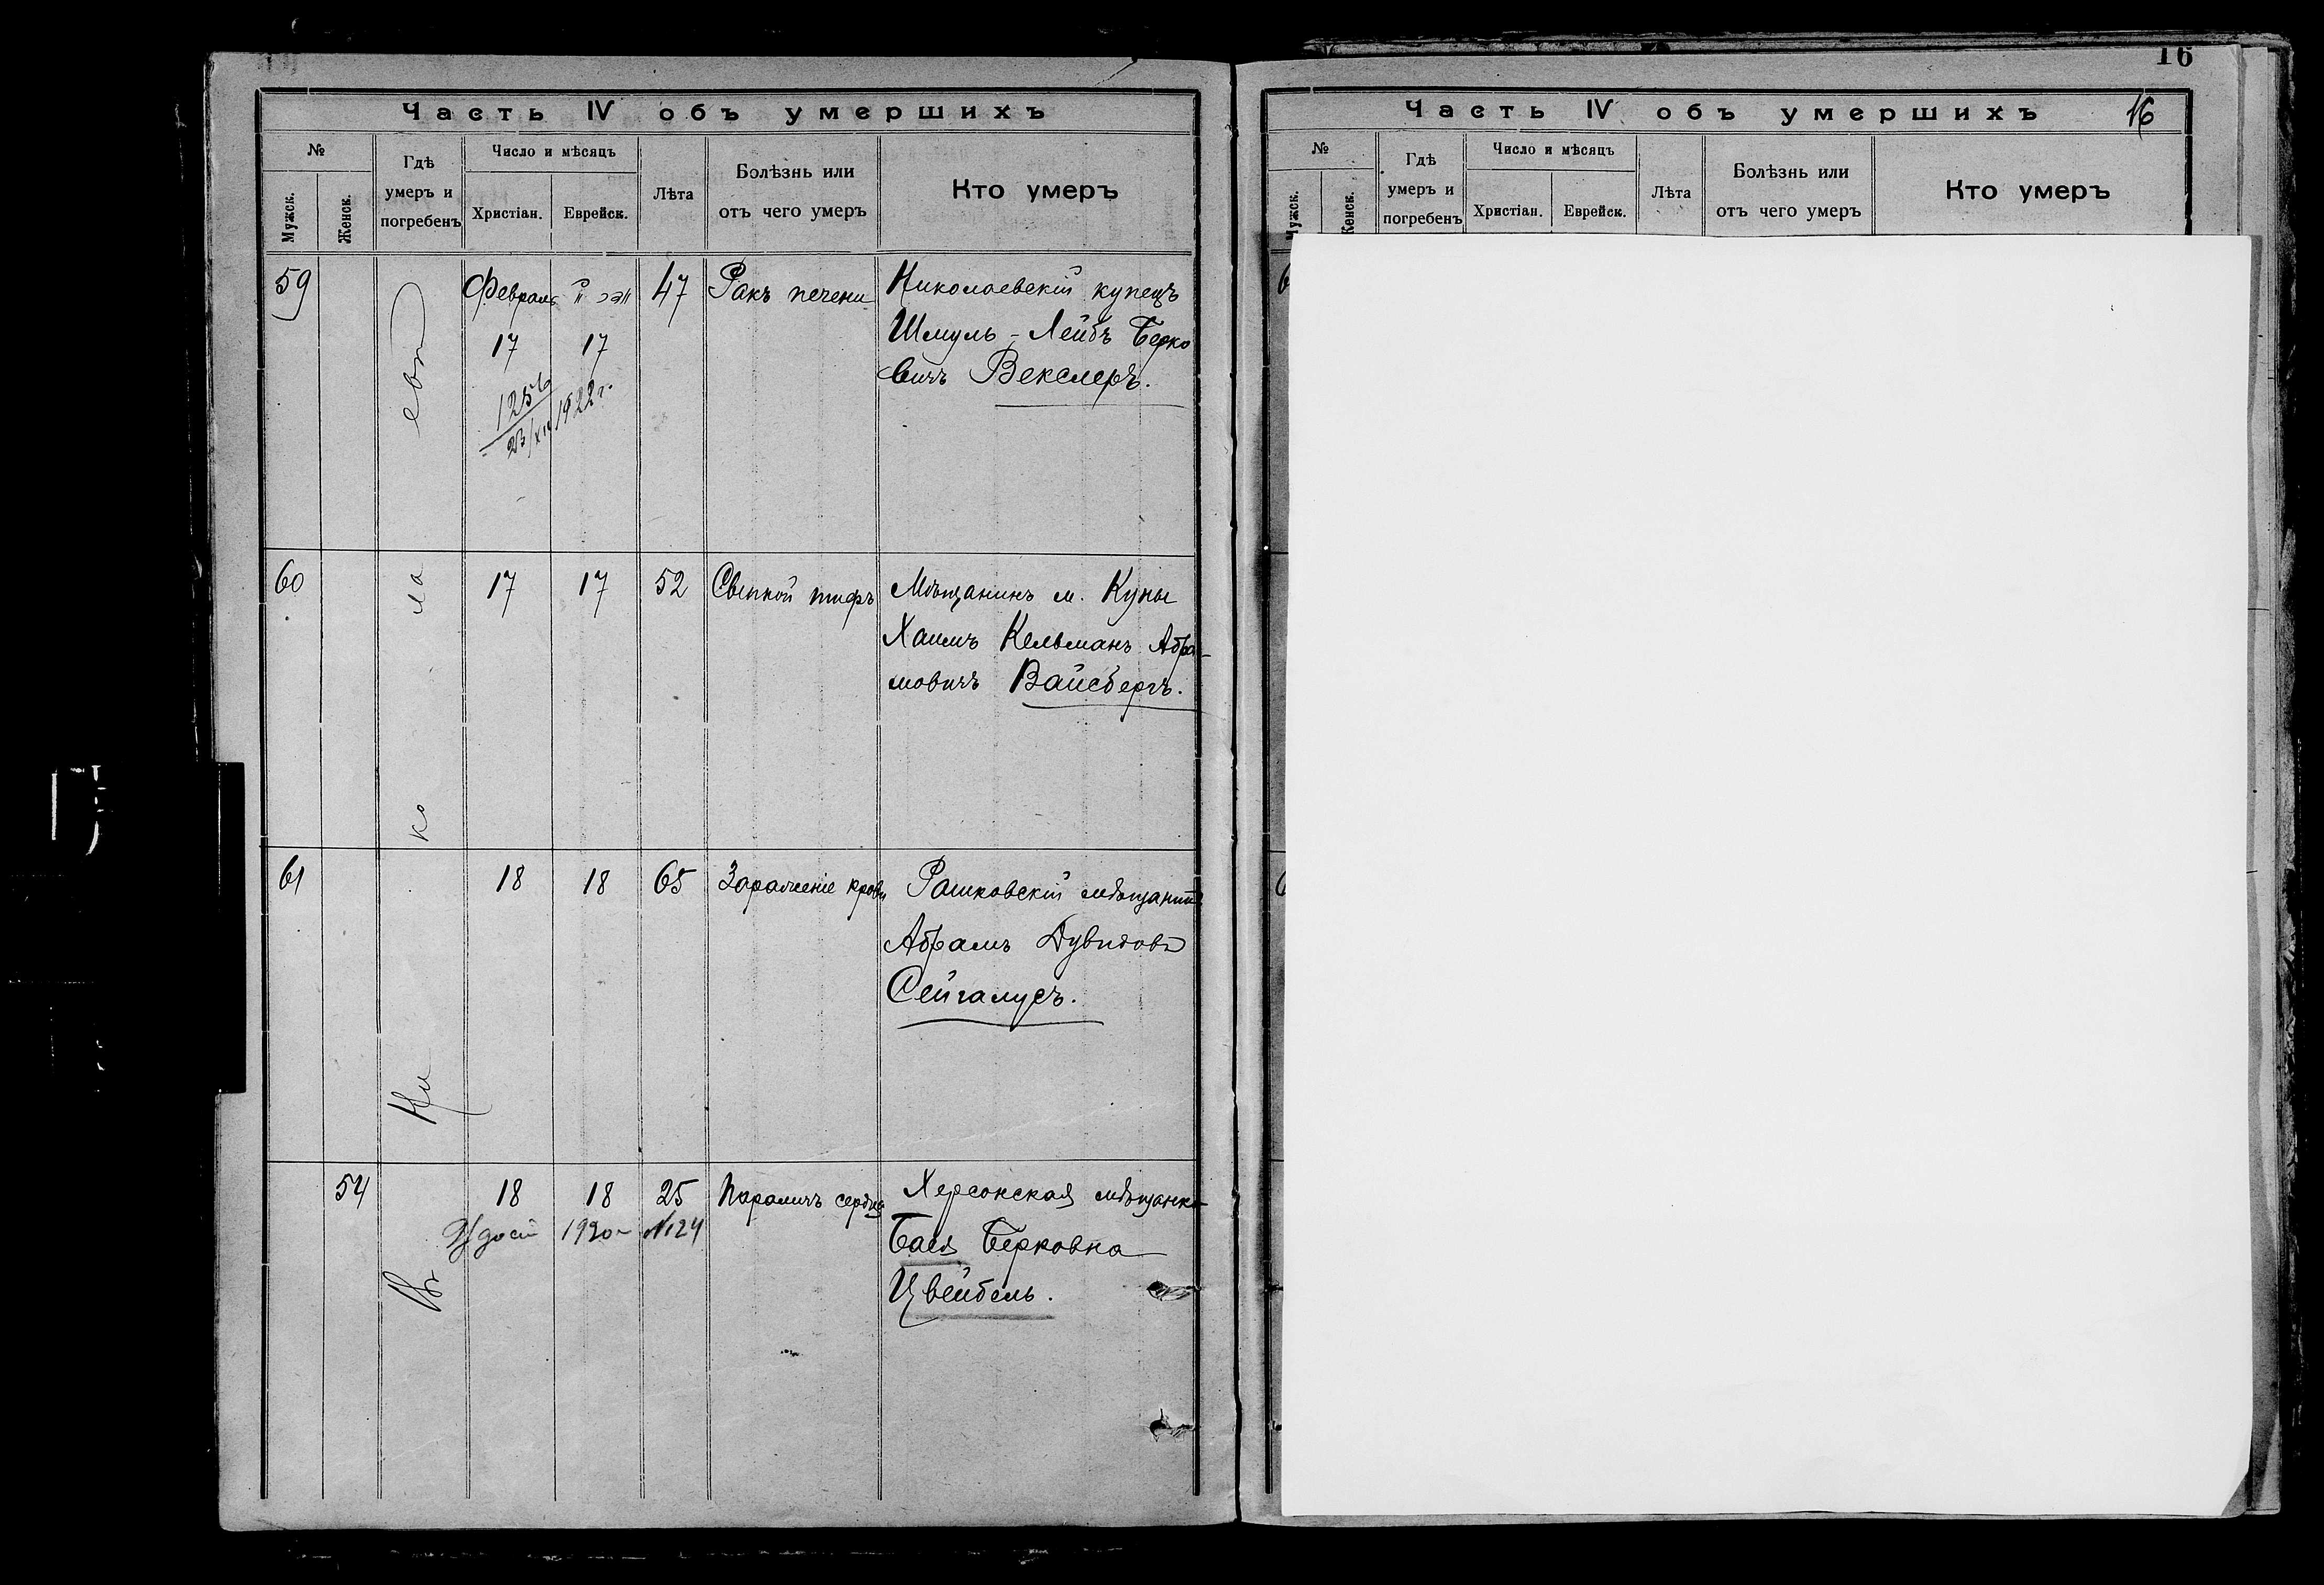 Часть IV объ умершихъ
№
Мужск.
Женск.
Гдѣ
умеръ и
погребенъ
Число и мѣсяцъ
Христіан.
Еврейск.
Лѣта
Болѣзнь или
отъ чего умеръ
Кто умеръ
59
Февраля
17
17
1256
23/XII 1922 г.
47
Ракъ печени
Николаевскій купецъ
Шмуль-Лейбъ Берко
вичъ Векслеръ.
60
17
17
52
Сыпной тифъ
Мѣщанинъ м. Куны
Хаимъ Кельманъ Абра-
мовичъ Вайсбергъ.
61
18
18
65
Зараженіе крови
Рашковскій мѣщанинъ
Абрамъ Дувидовъ
Сейгалусъ.
54
18
18
25
1920 №124
Параличъ сердца
Херсонская мѣщанка
Бася Берковна
Цвейбель.
Въ Николаевѣ
16
Часть IV объ умершихъ
16
№
Мужск.
Женск.
Гдѣ
умеръ и
погребенъ
Число и мѣсяцъ
Христіан.
Еврейск.
Лѣта
Болѣзнь или
отъ чего умеръ
Кто умеръ